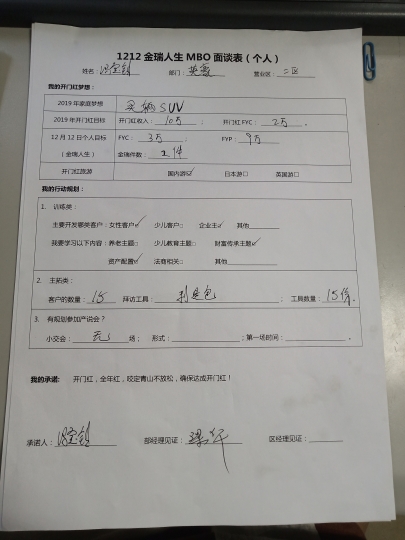 1212 金瑞人生 MBO 面谈表（个人）
姓名： 部门： 英豪 营业区： 二区
我的开门红梦想：
2019 年家庭梦想 买辆SUV
2019 年开门红目标 开门红收入： 10万 开门红 FYC： 2万 。
12 月 12 日个人目标 FYC： 3万 FYP： 9万
（金瑞人生） 金瑞件数： 2件
开门红旅游 国内游☑ 日本游□ 英国游□
我的行动规划：
1. 训练类：
主要开发哪类客户：女性客户☑ 少儿客户□ 企业主☑ 其他
我要学习以下内容：养老主题□ 少儿教育主题□ 财富传承主题☑
资产配置☑ 法商相关□ 其他
2. 主拓类：
客户的数量： 15 拜访工具： 利是包 工具数量： 15份 。
3. 有规划参加产说会？
小交会： 场； 形式： ；第一场时间： 。
我的承诺： 开门红，全年红，咬定青山不放松，确保达成开门红！
承诺人： 部经理见证： 区经理见证：